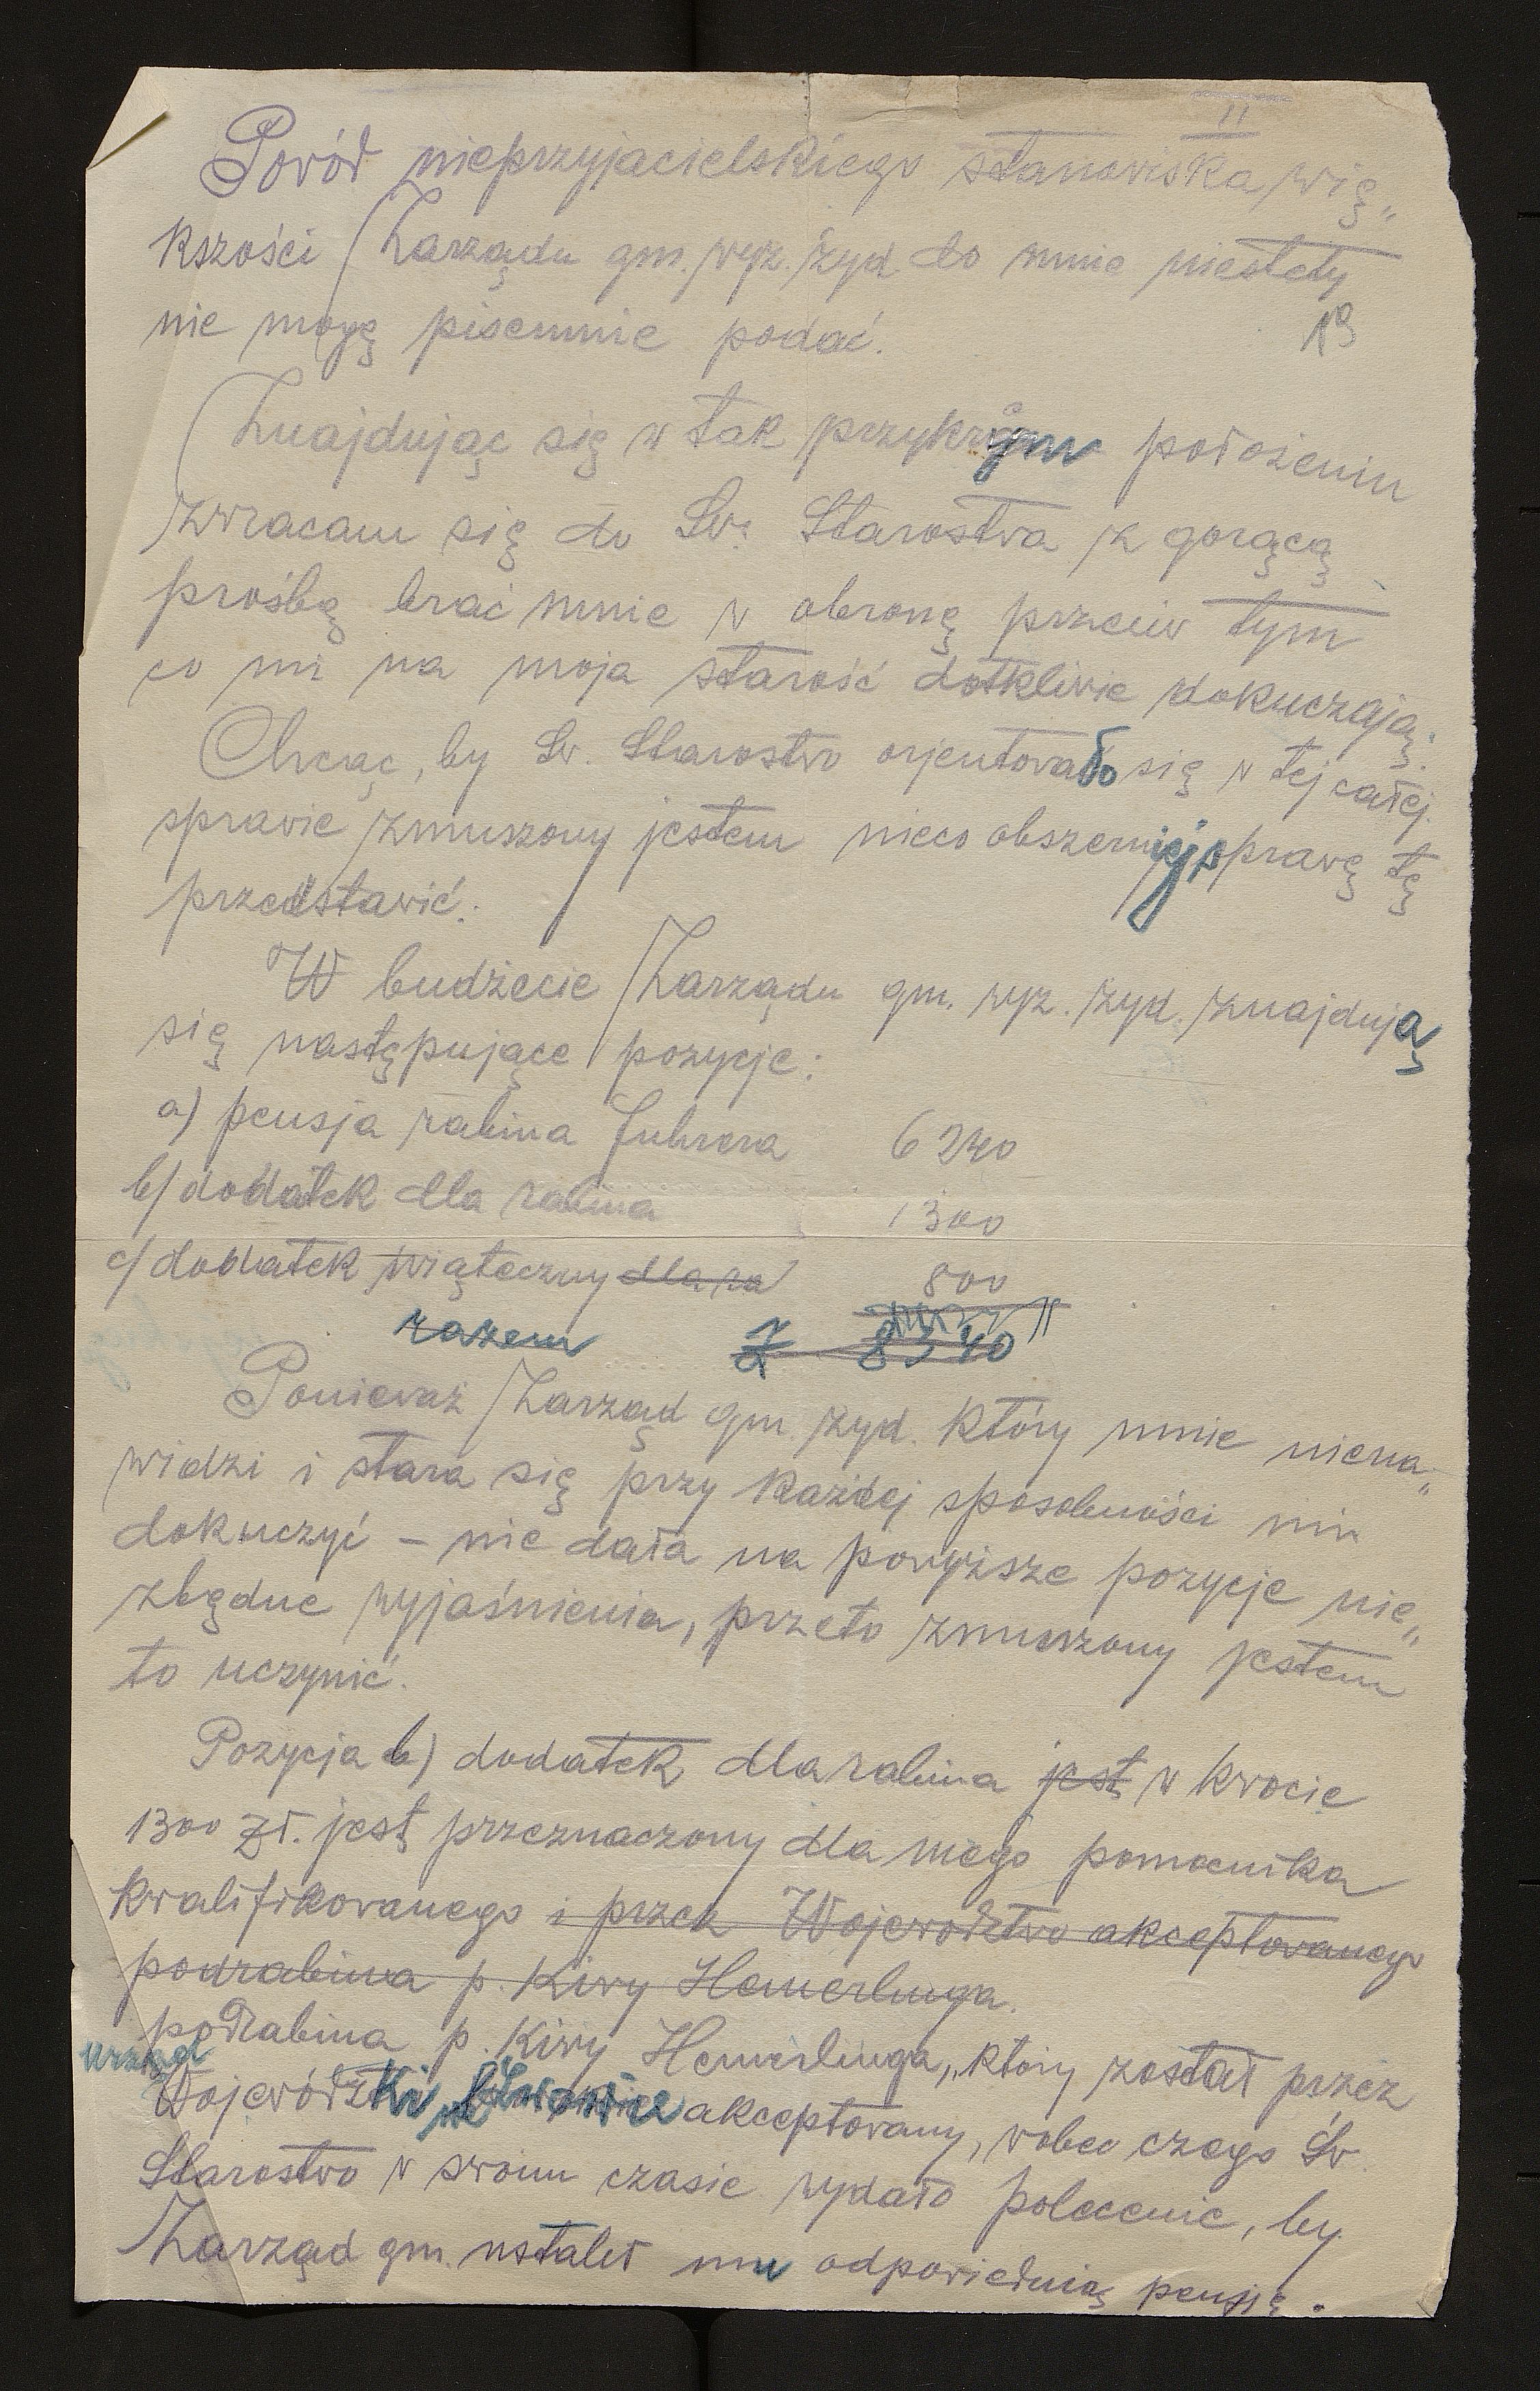 II
Powód nieprzyjacielskiego stanowiska wię„
kszości Zarządu gm. wyz. żyd. do mnie niestety
nie mogę pisemnie podać.
19
Znajdując się w tak przykrym położeniu
zwracam się do Św. Starostwa z gorącą
prośbą brać mnie w obronę przeciw tym
co mi na moja starość dotkliwie dokuczają.
Chcąc, by Św. Starostwo orjentowało się w tej całej
sprawie zmuszony jestem nieco obszerniej sprawę tę
przedstawić.
W budżecie Zarządu gm. wyz. żyd. znajdują
się następujące pozycje:
a) pensja rabina Fuhrera 6240
b) dodatek dla rabina 1300
c) dodatek świąteczny dla ra 800
razem Z 8340
Ponieważ Zarząd gm. żyd. który mnie niena„
widzi i stara się przy każdej sposobności mi
dokuczyć – nie dała na powyższe pozycje nie„
zbędne wyjaśnienia, przeto zmuszony jestem
to uczynić.
Pozycja b) dodatek dla rabina jest w kwocie
1300 zł. jest przeznaczony dla mego pomocnika
kwalifikowanego i przez Województwo akceptowanego
podrabina p. Kiwy Hemerlinga.
podrabina p. Kiwy Hemerlinga, który został przez
urząd
Wojewódzki we Lwowie akceptowany, wobec czego Św.
Starostwo w swoim czasie wydało polecenie, by
Zarząd gm. ustalił mu odpowiednią pensję.